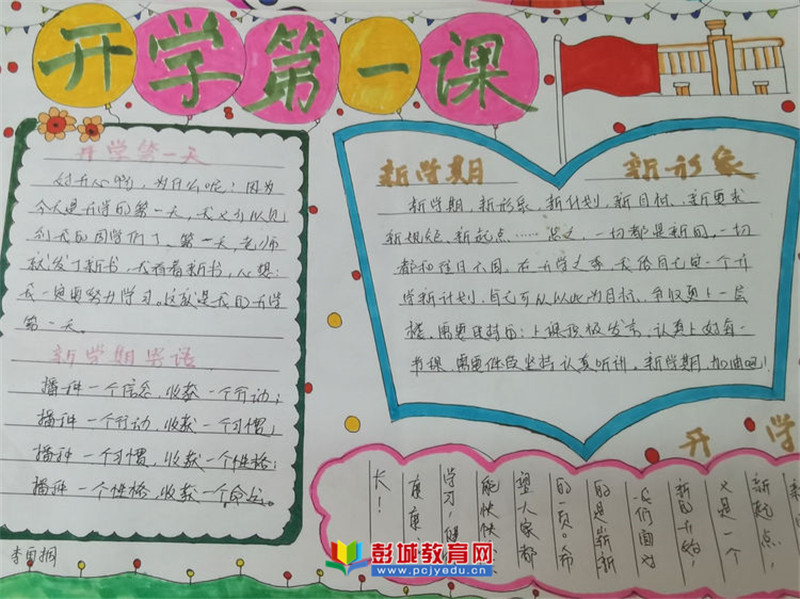 开学第一课
开学第一天
好开心哟，为什么呢？因为
今天是开学的第一天，我又可以见
到我的同学们了。第一天，老师
就发了新书，我看着新书，心想：
我一定要努力学习。这就是我的开学
第一天。
新学期寄语
播种一个信念，收获一个行动；
播种一个行动，收获一个习惯；
播种一个习惯，收获一个性格；
播种一个性格，收获一个命运。
新学期 新形象
新学期，新形象，新计划，新目标，新要求
新起点……总之，一切都是新的，一切
都和往日不同。在开学之季，我给自己定一个开
学新计划，自己可以以此为目标，争取更上一层
楼，需要 上课积极发言，认真上好每一
节课，需要 坚持认真听讲。新学期，加油吧！
开 学
新起点，
又是一个
新的开始，
我们面对
的是崭新
的一页。希
望大家都
能快快
学习，健
康
长！
彭城教育网
www.pcjyedu.cn